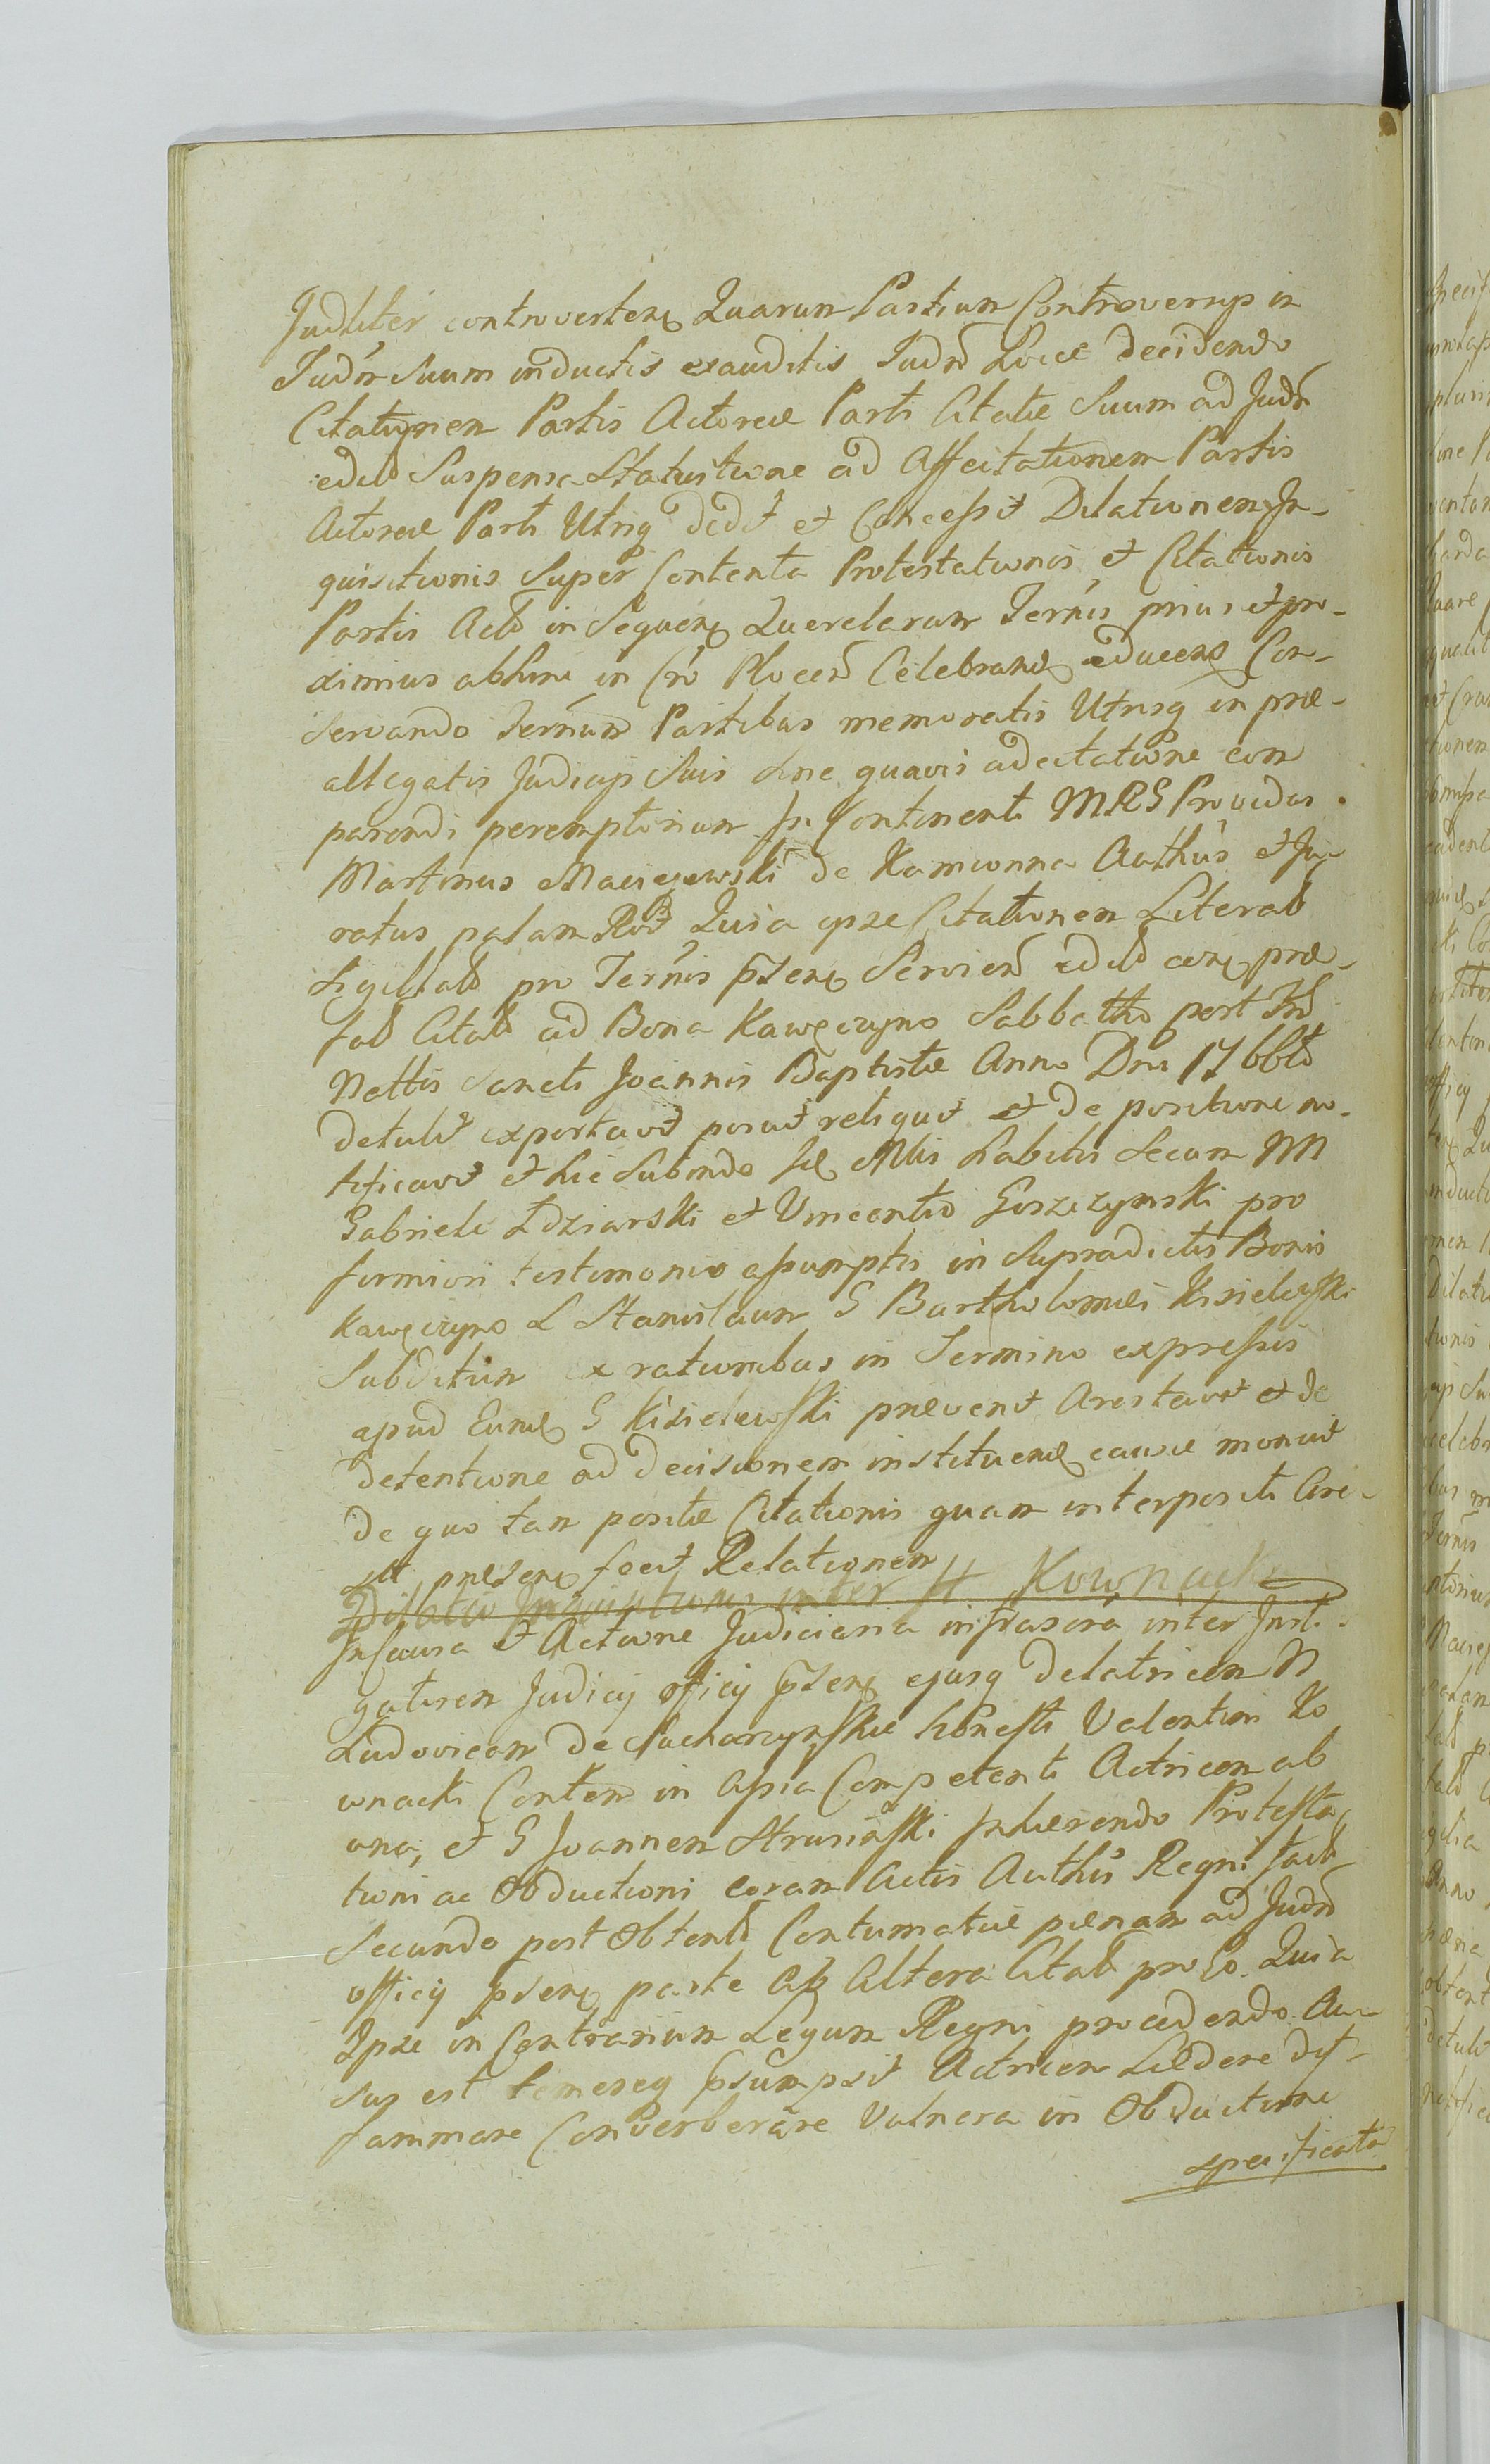 Judliter controverten Quarum Partium Controversys in
Judm suum inductis exauditis Judm Loice decidendo
Citationem Partis Actoreæ Parti Citatæ Suum ad Judm
edit Suspensa Statuitione ad Affectationem Partis
Actoreæ Parti Utriq dedit et Concessit Dilationem In-
quisitionis Super Contenta Protestationis et Citationis
Partis Act in Sequen Querelarum Ternis prius et pro-
ximius abhinc in Cro Plocen Celebrand educen Con-
servando Ternum Partibus memoratis Utrisq in præ-
allegatis Judicijs Suis sine quavis adcitatione com
parendi peremptorium In Continenti MRS Providus
Martinus Maciejewski de Kamionna Authus et Ju-
ratus palam Quia ipse Citationem Literal
Sigillat pro Ternis psen Servien præ-
fat Citat ad Bona Kawęczyno Sabbatho post Fest
Nattis Sancti Joannis Baptistæ Anno Dni 1766to
detulit exportavit posuit reliquit et de positione no-
tificavit et hic Subindo Nlibs habitis Secum M
Gabriele Łdziarski et Vincentio Goszczynski pro
firmiori testimonio assumptis in Supradictis Bonis
Kawęczyno L Stanislaum G Bartholomæi Kisielewski
Subditum ex rationibus in Termino expressis
apud Eund G Kisielewski prævenit Arestavit et de
detentione ad decisionem instituend causæ monuit
De quo tam positæ Citationis quam interpositi Are-
sti præsen fecit Relationem
Dilatio Inquisitionis inter H Kownacki
In Causa et Actione Judiciaria infrascra inter Insti-
gatorem Judicij officij psen ejusq delatricem N
Ludovicam de Sucharzynskie honesti Valentini Ko
wnacki Conten in Assia Competenti Actricem ab
una, et G Joannem Strusinski Inhærendo Protesta
tioni ac Obductioni coram Actis Authis Regni fact
Secundo post Obtent Contumatiæ pænam ad Judm
officij psen parte ab Altera Citat pro Eo. Quia
Ipse in Contrarium Legum Regni procedendo Au-
sus est temereq psumpsit Actricem Lædere dif-
famare Converberare Vulnera in Obductione
specificata